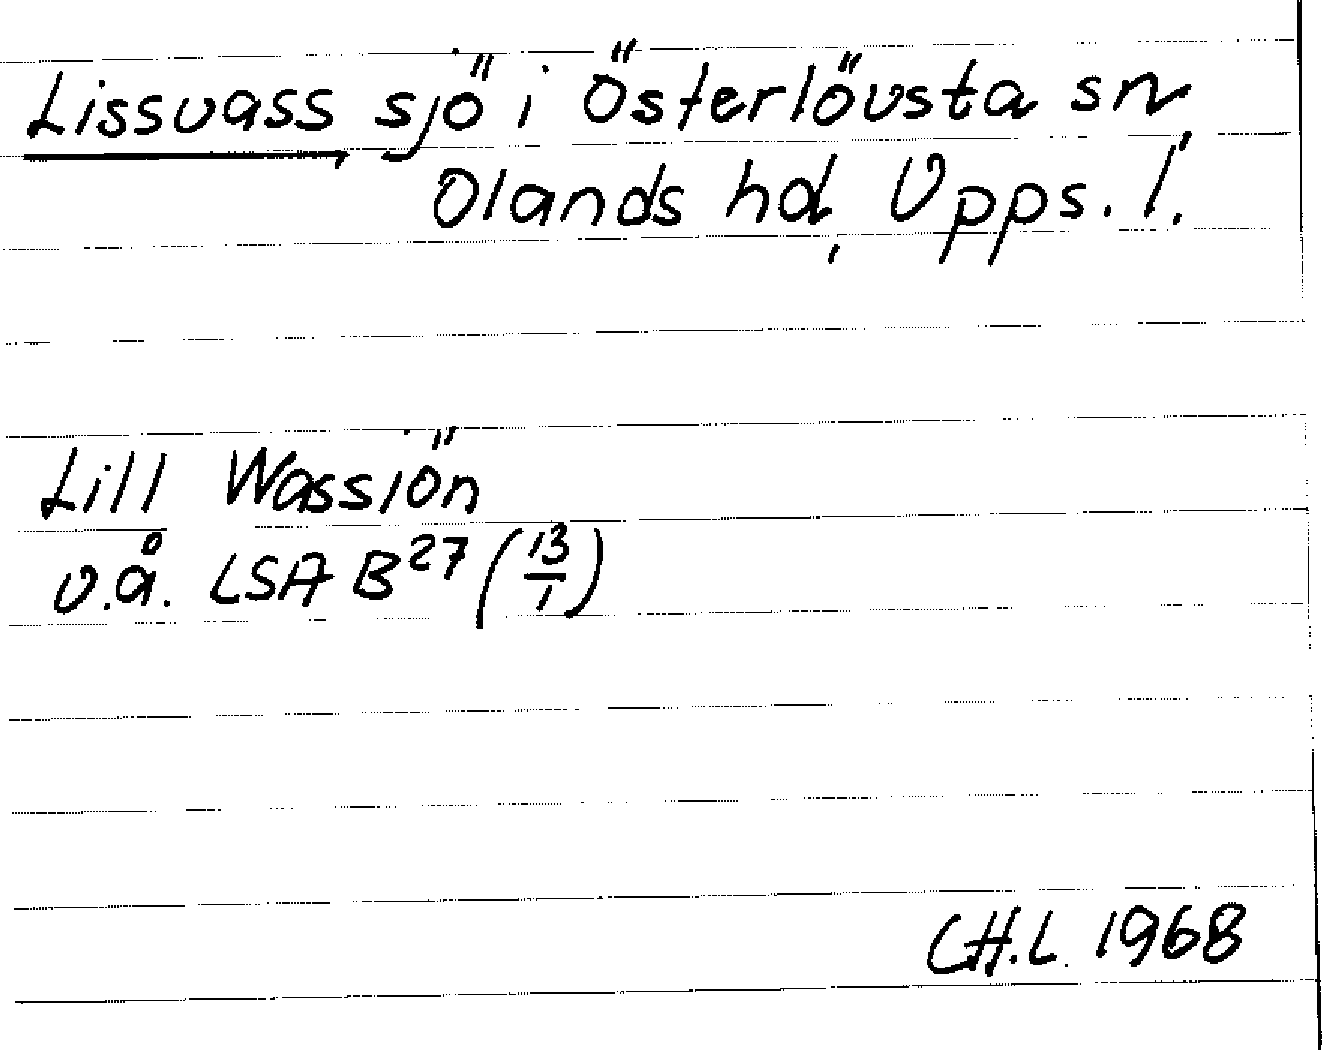 Lissvass sjö i Österlövsta sn,
Olands hd, Upps. l.
Lill Wassiön
u.å. LSA B²⁷ (13/1)
CH.L. 1968